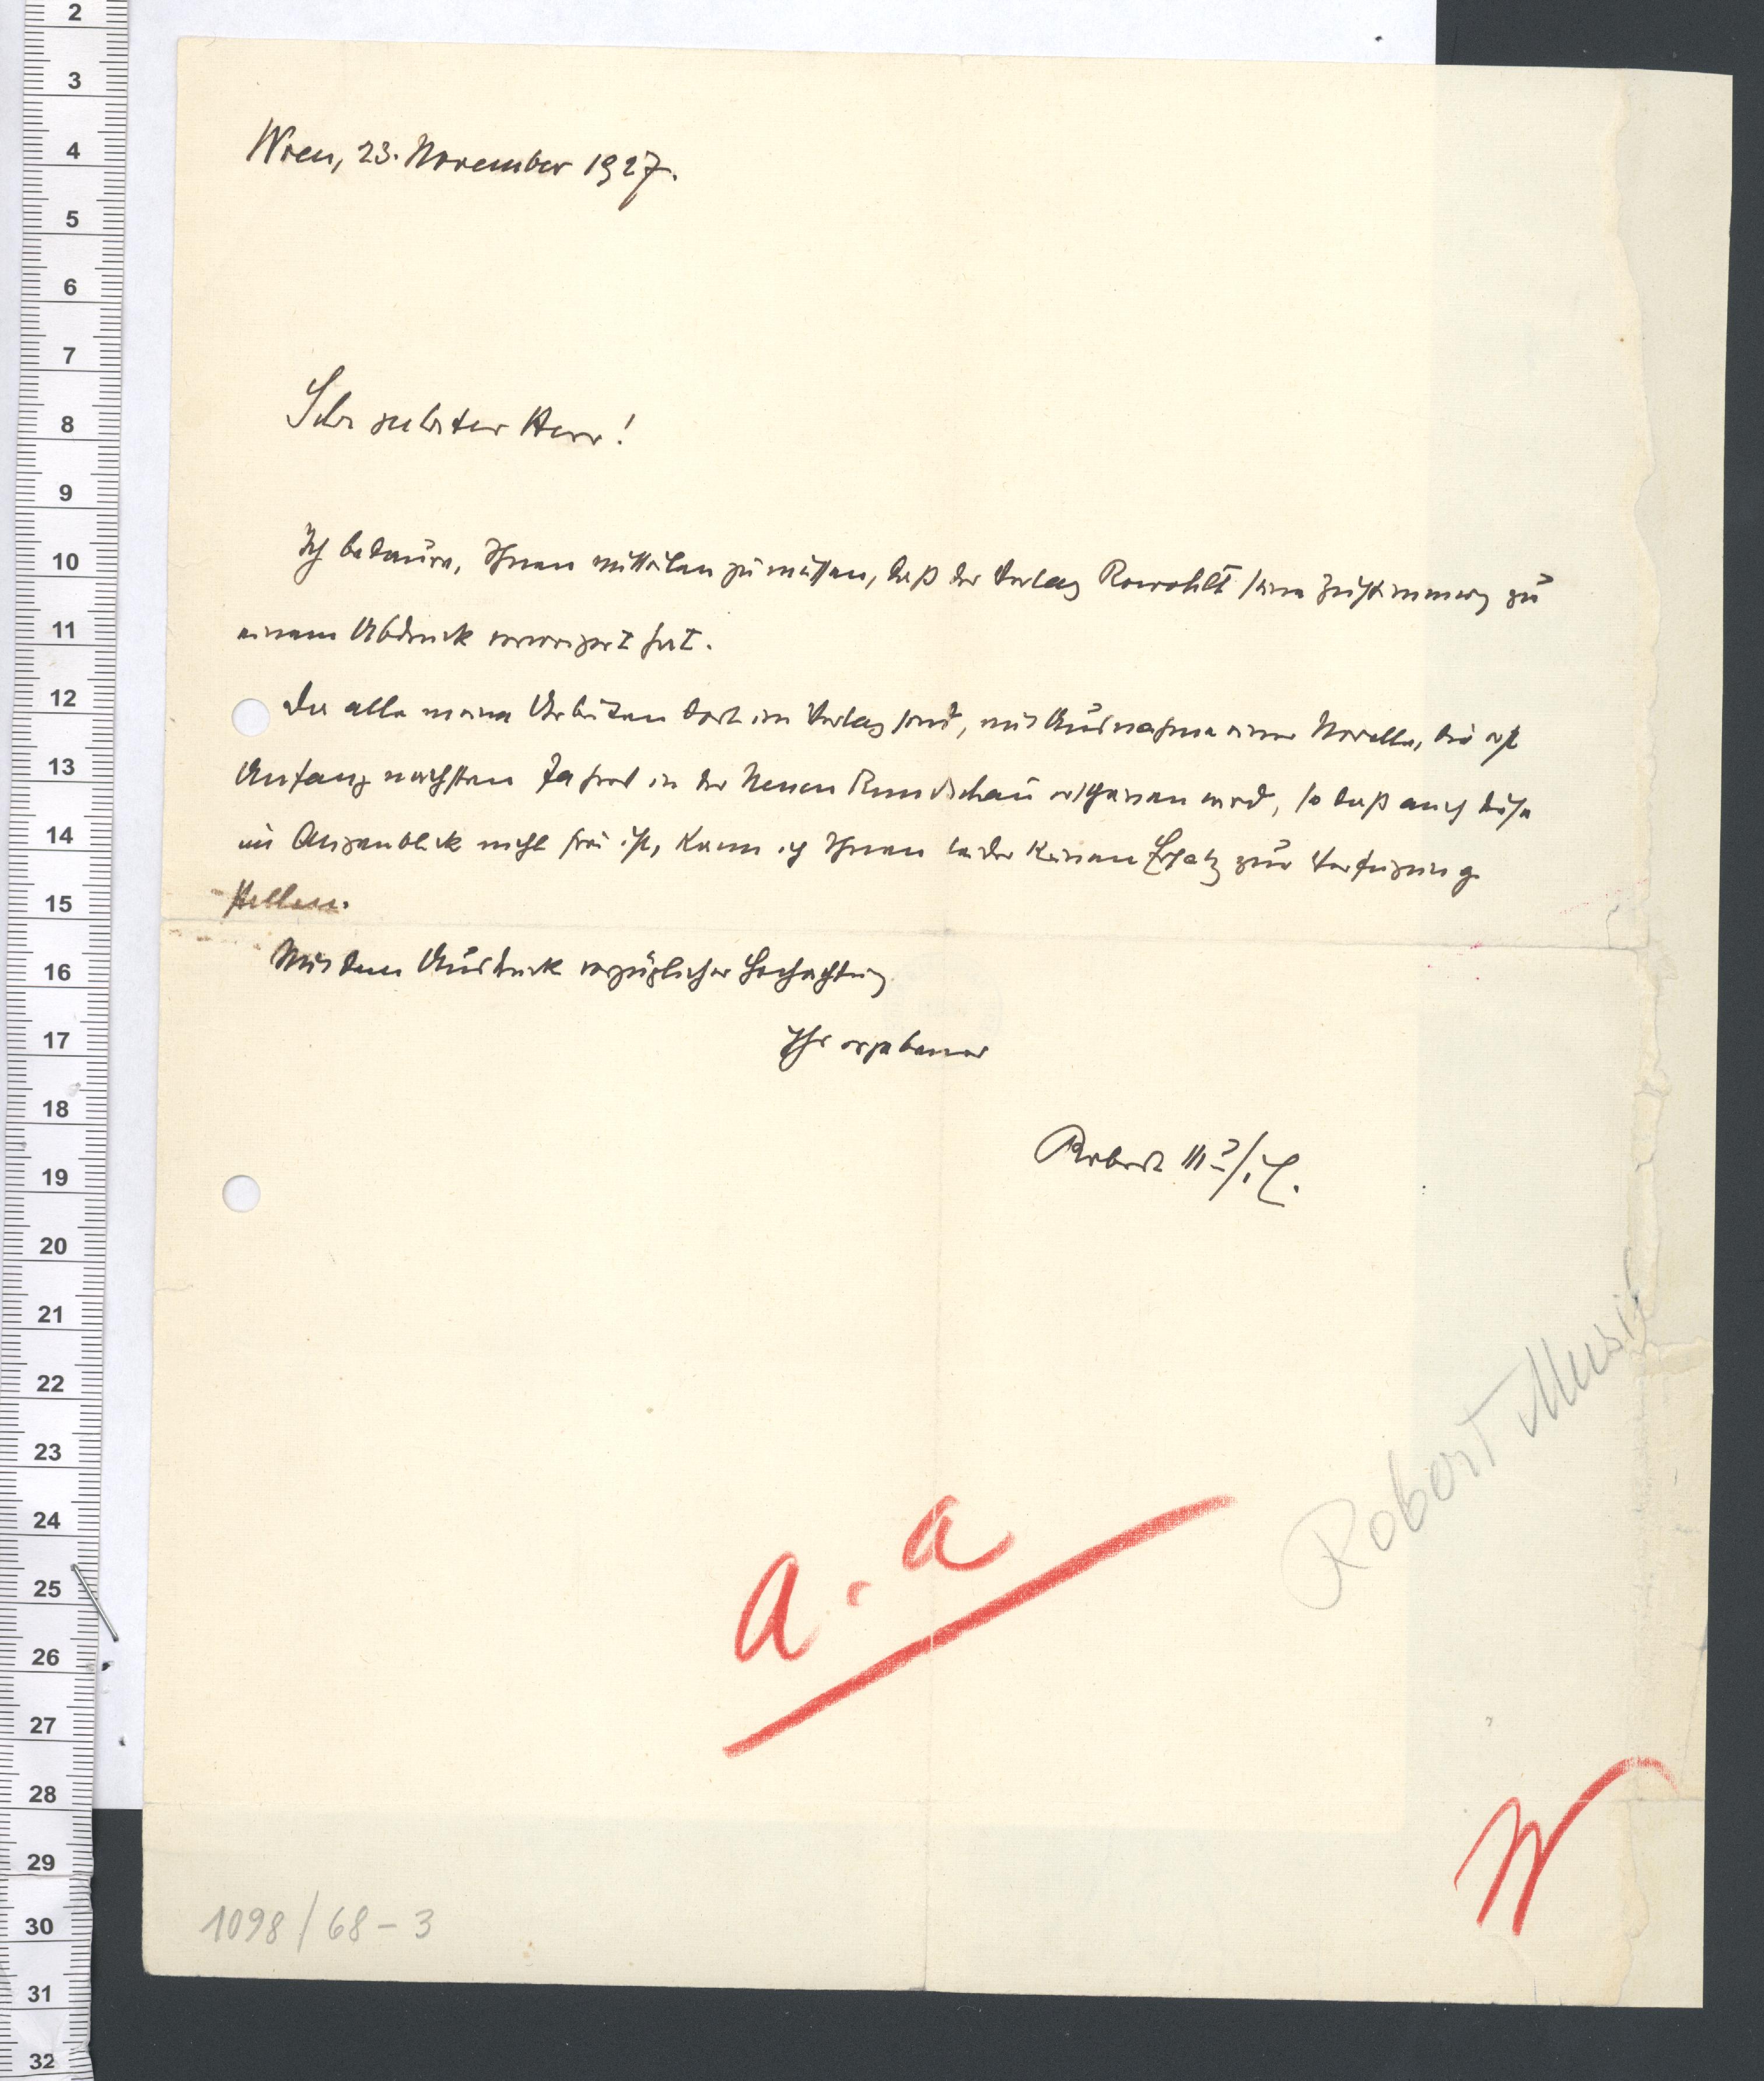 Wien, 23. November 1927.
Sehr geehrter Herr!
Ich bedaure, Ihnen mitteilen zu müssen, daß der Verlag Rowohlt seine Zustimmung zu
einem Abdruck verweigert hat.
Da alle meine Arbeiten dort im Verlag sind, mit Ausnahme einer Novelle, die erst
Anfang nächsten Jahres in der Neuen Rundschau erscheinen wird, so daß auch diese
im Augenblick nicht frei ist, kann ich Ihnen leider keinen Ersatz zur Verfügung
stellen.
Mit dem Ausdruck vorzüglicher Hochachtung
Ihr ergebener
Robert Musil.
Robert Musil
a. a
1098/68-3
2
3
4
5
6
7
8
9
10
11
12
13
14
15
16
17
18
19
20
21
22
23
24
25
26
27
28
29
30
31
32